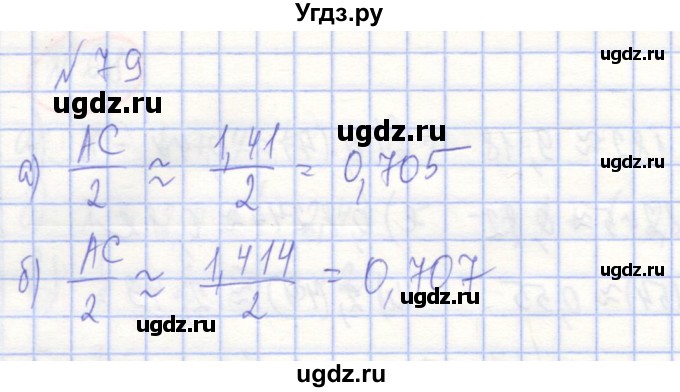 Угдз.ру
№79 ugdz.ru
ugdz.ru
ugdz.ru
а) AC/2 ≈ 1,41/2 = 0,705
ugdz.ru
б) AC/2 ≈ 1,414/2 = 0,707
ugdz.ru
ugdz.ru
ugdz.ru
ugdz.ru
ugdz.ru